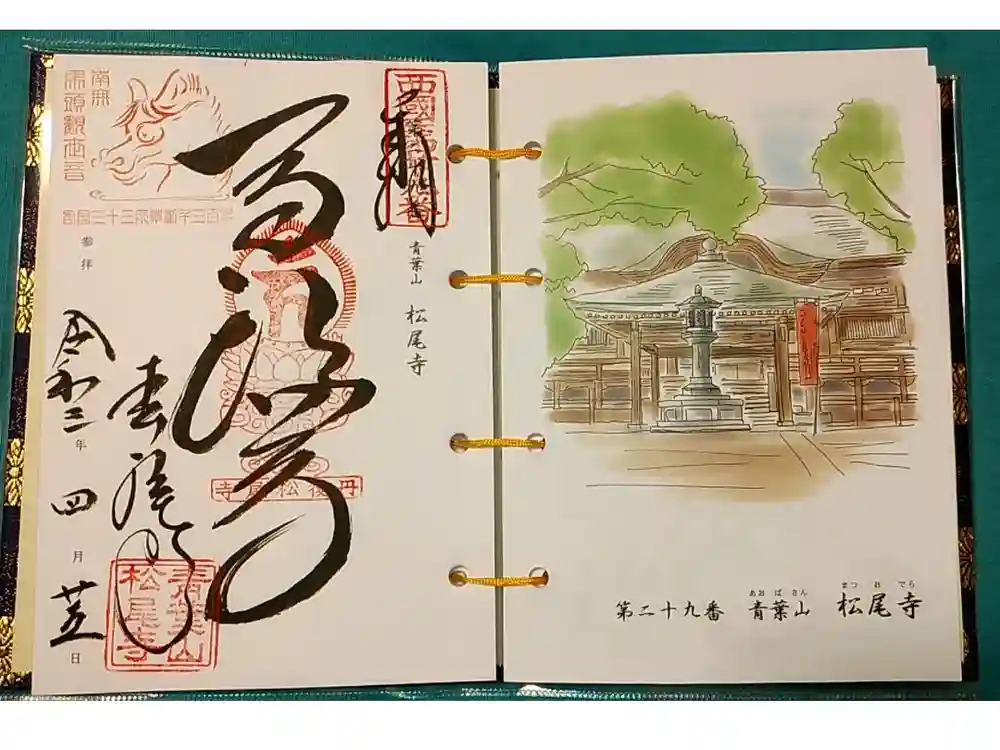 西國第二十九番
青葉山 松尾寺
丹後松尾寺
松尾寺
青葉山
松尾寺
南無
馬頭観世音
西国三十三所草創千三百年
参拝
令和三年四月廿五日
あおばさん まつおでら
第二十九番 青葉山 松尾寺